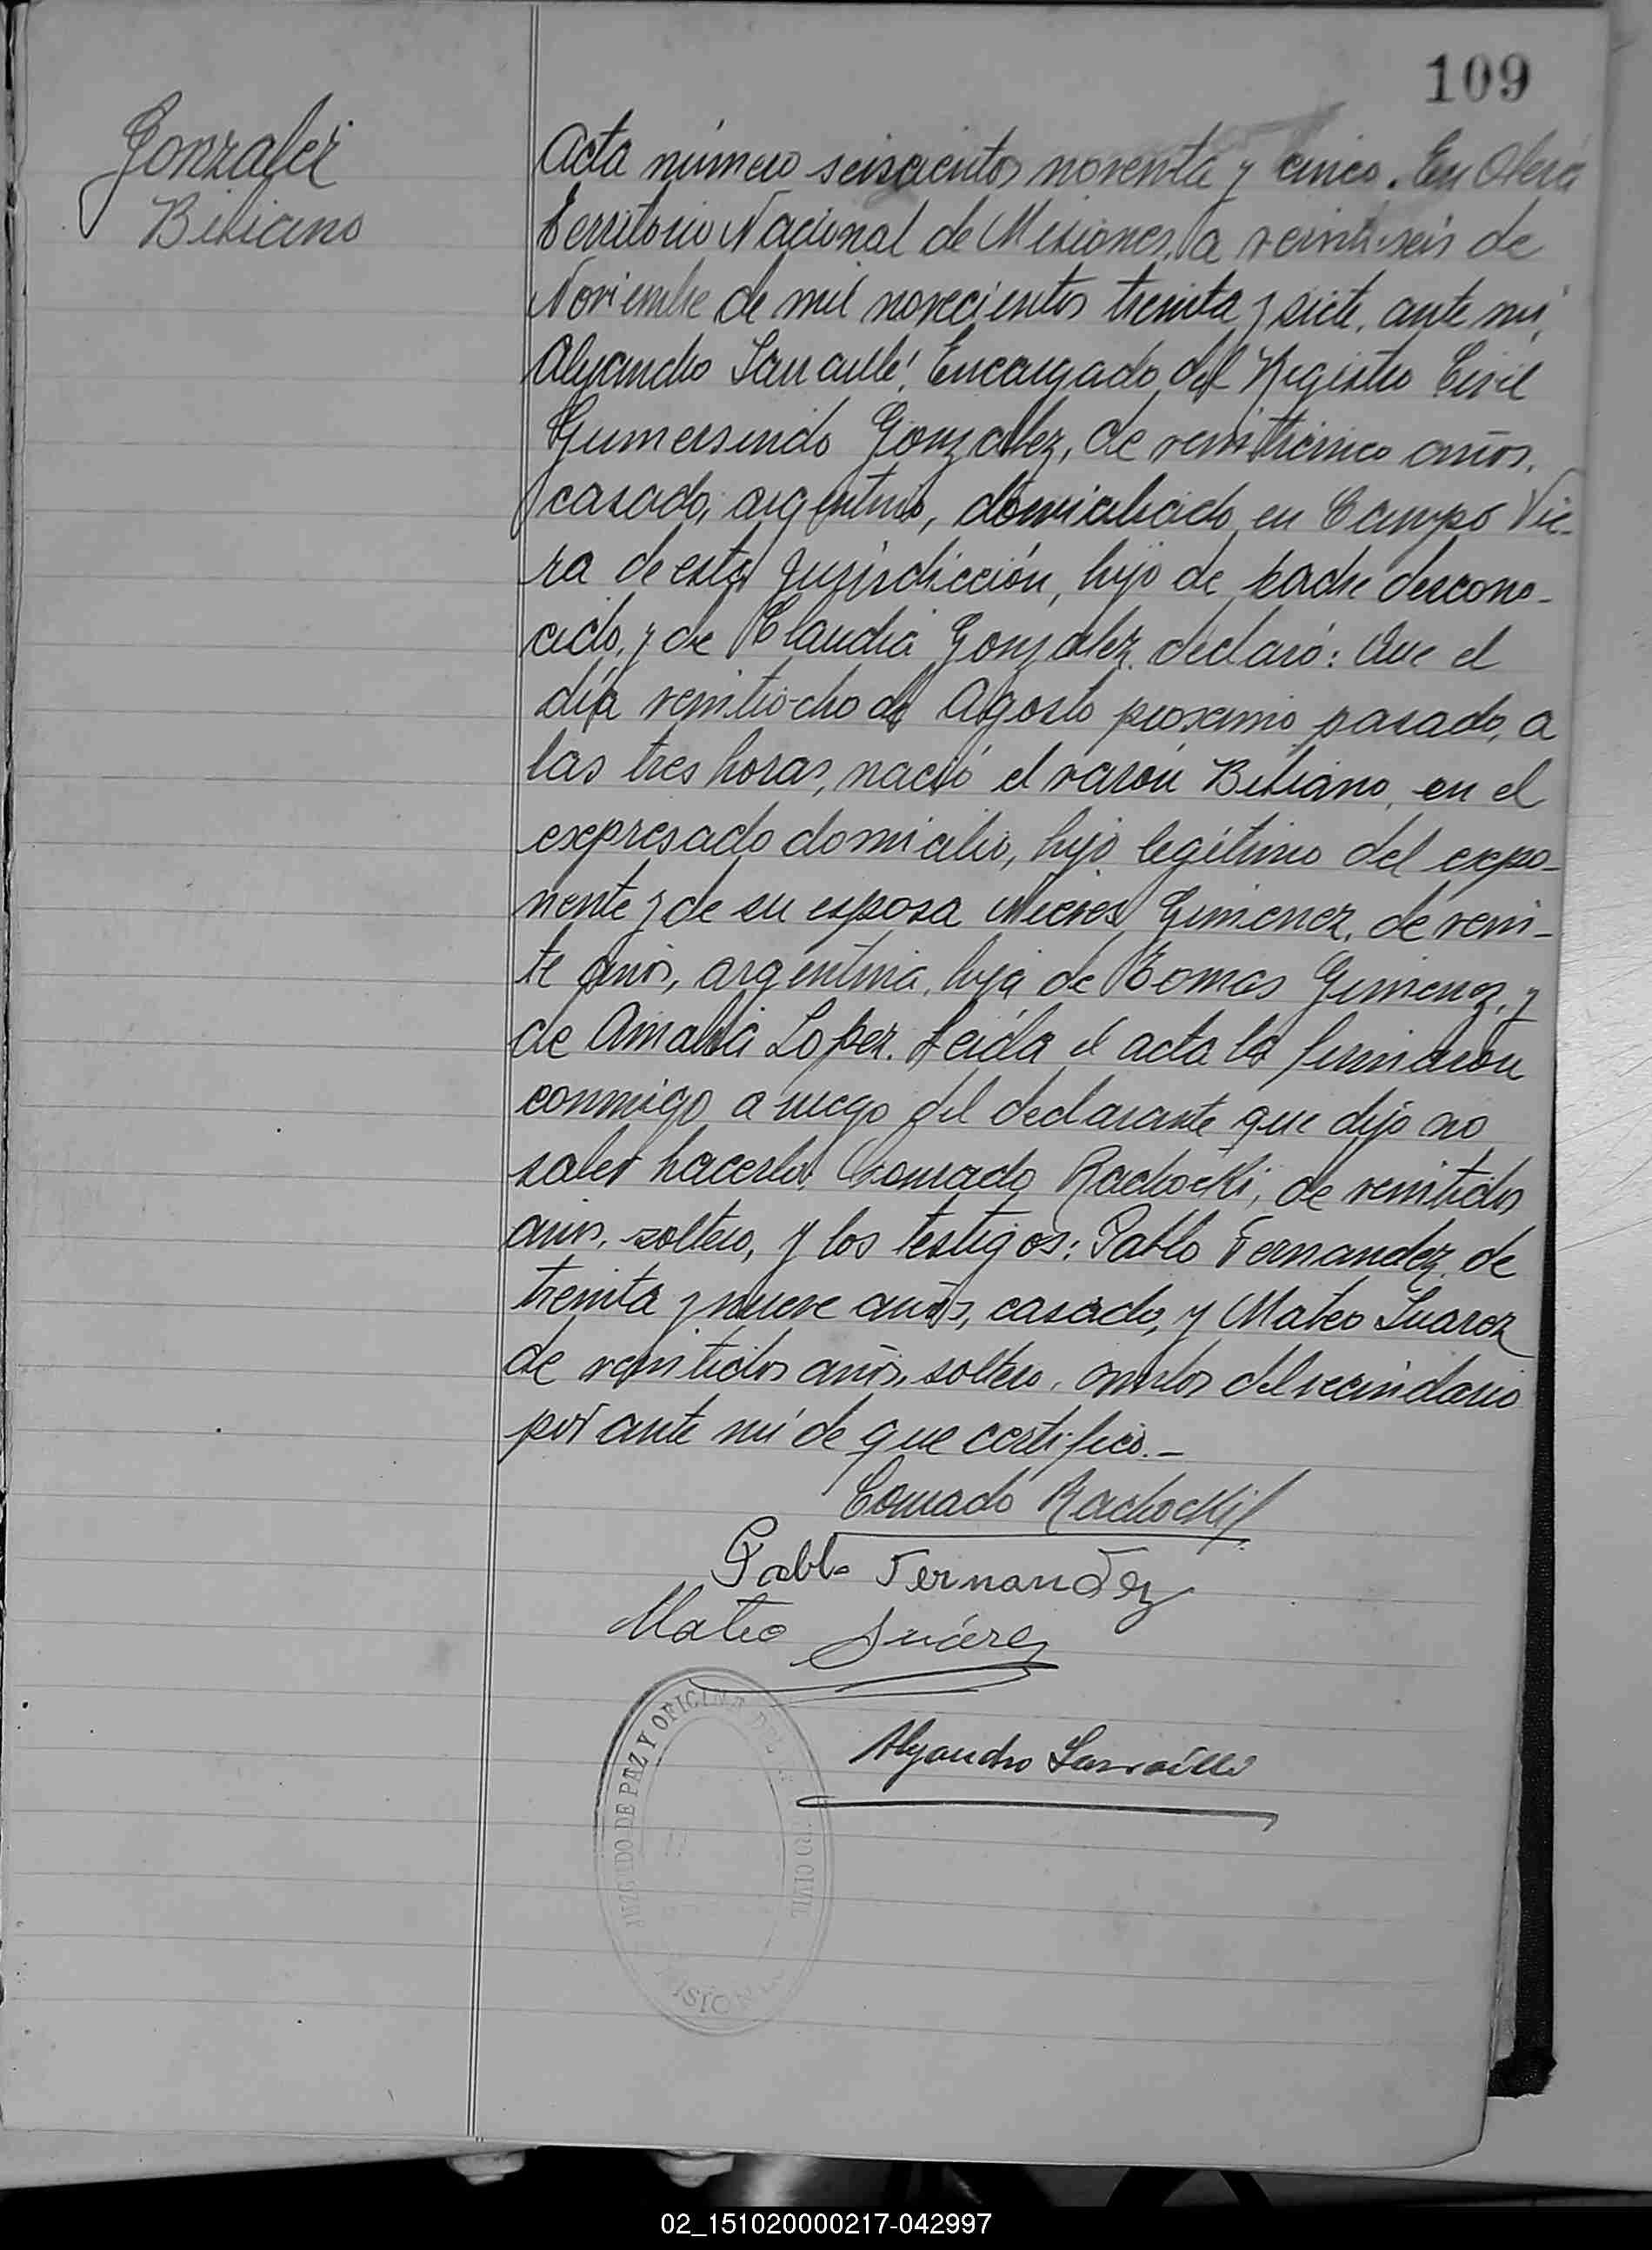 109
Gonzalez
Bibiano
Acta número seiscientos noventa y cinco. En Oberá
Territorio Nacional de Misiones, a veintiseis de
Noviembre de mil novecientos treinta y siete, ante mi,
Alejandro Sarraillé, Encargado del Registro Civil
Gumersindo Gonzalez, de veinticinco años,
casado, argentino, domiciliado en Campo Vie-
ra de esta jurisdicción, hijo de padre descono-
cido, y de Claudia Gonzalez, declaró: Que el
día veintiocho de Agosto proximo pasado, a
las tres horas, nació el varón Bibiano, en el
expresado domicilio, hijo legítimo del expo-
nente y de su esposa Nieves Gimenez, de vein-
te años, argentina, hija de Tomas Gimenez, y
de Amalia Lopez. Leída el acta la firmaron
conmigo a ruego del declarante que dijo no
saber hacerlo, Conrado Rachocki, de veintidos
años, soltero, y los testigos: Pablo Fernandez, de
treinta y nueve años, casado, y Mateo Suarez
de veintidos años, soltero, ambos del vecindario
por ante mí de que certifico.-
Conrado Rachocki
Pablo Fernandez
Mateo Suárez
Alejandro Sarraillé
JUZGADO DE PAZ Y OFICINA DEL CIVIL
02_151020000217-042997